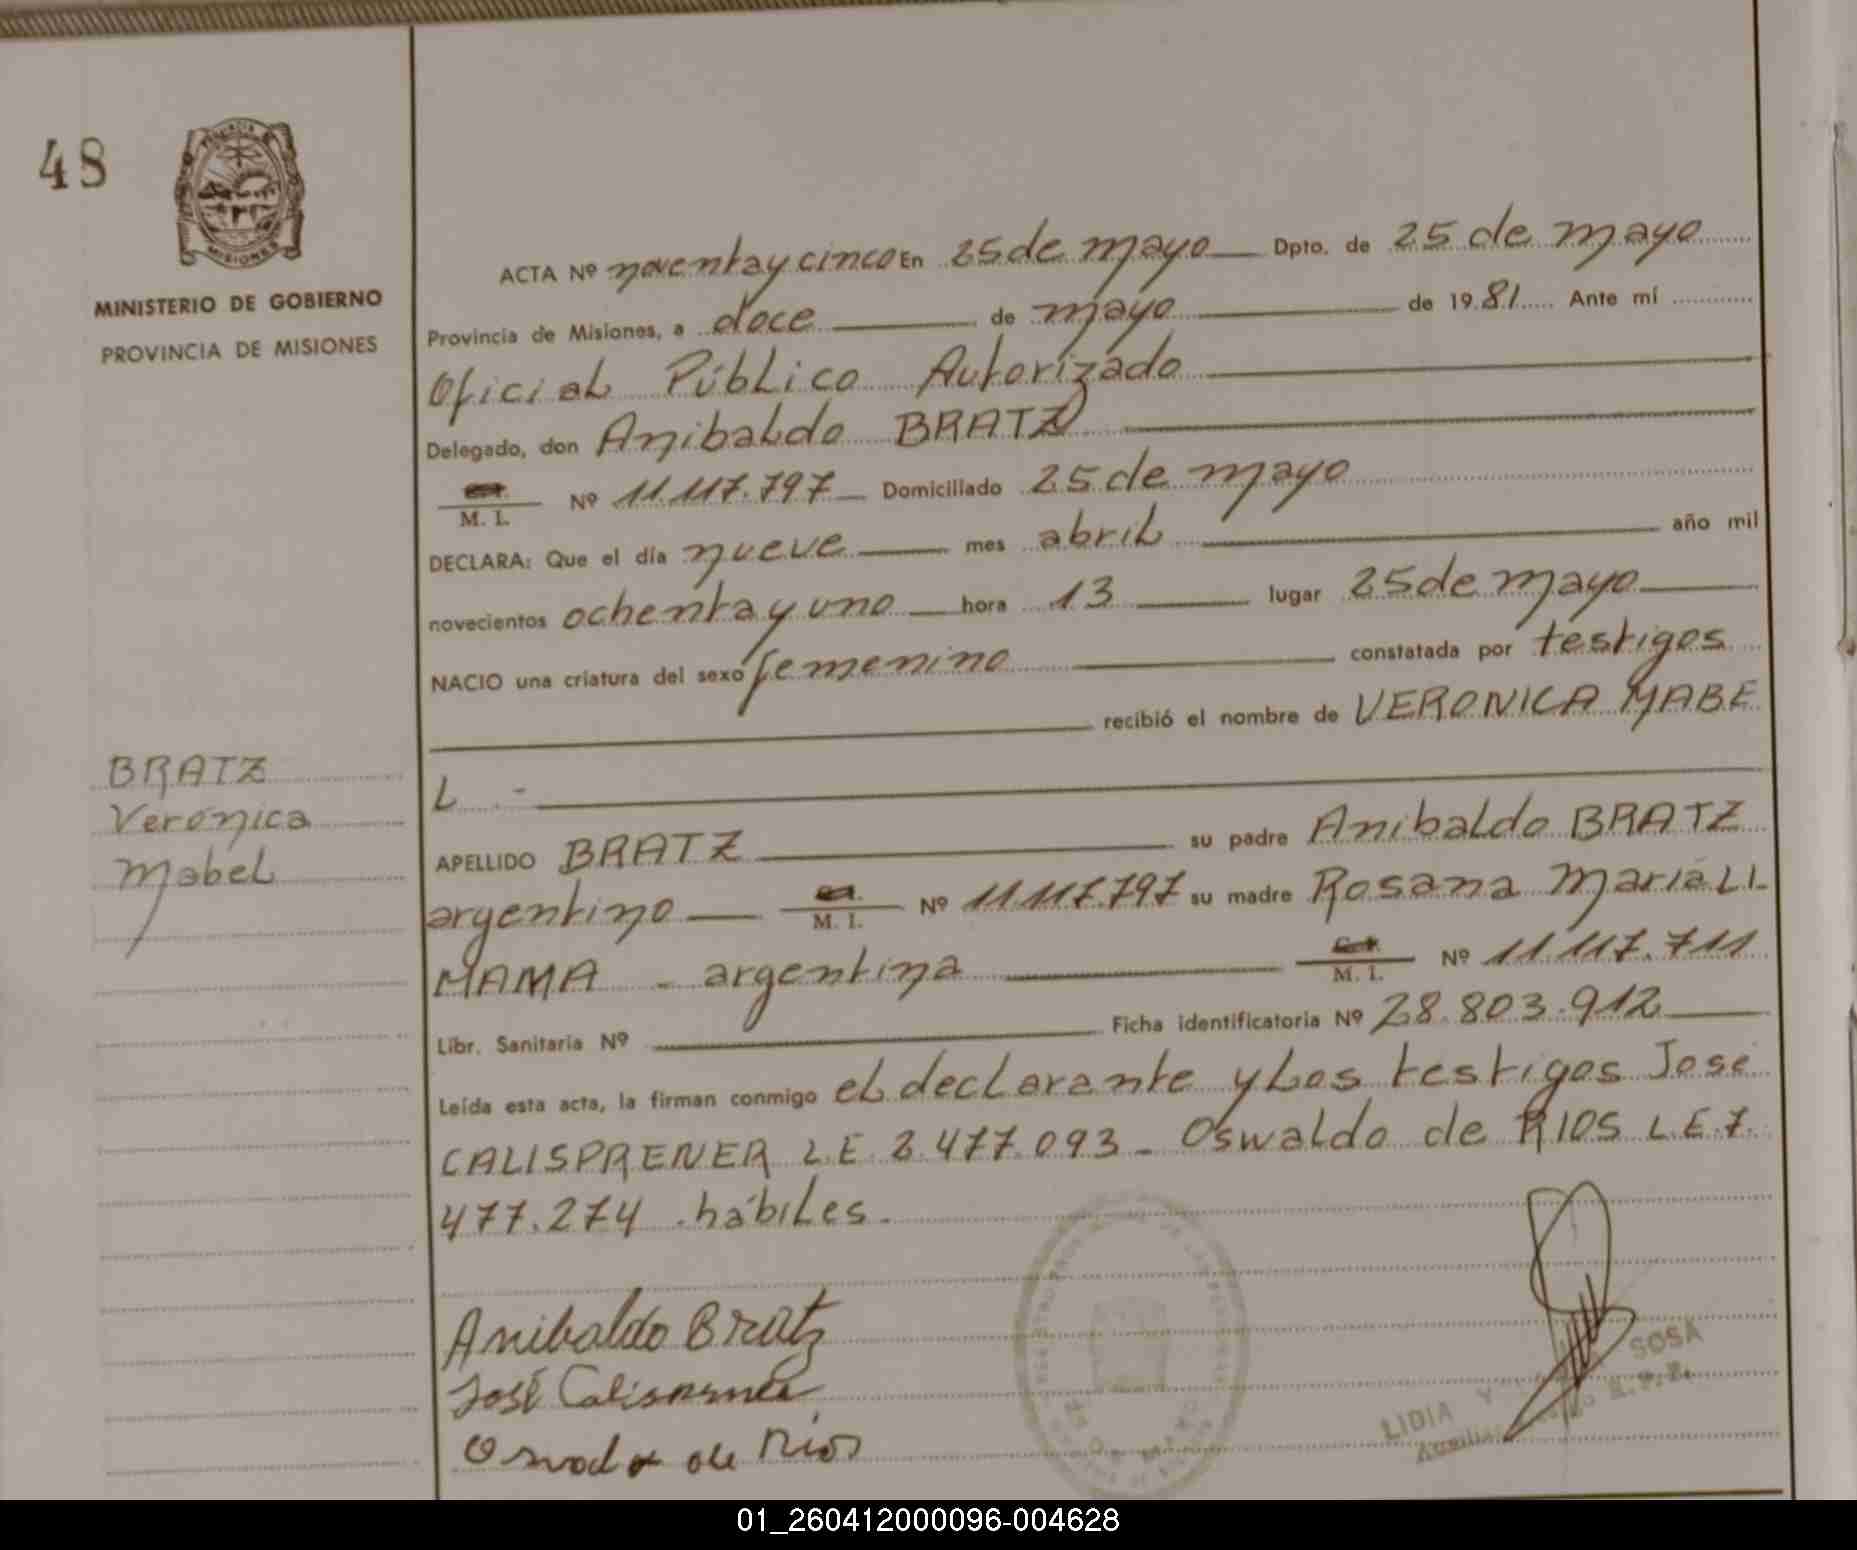 48
MISIONES
MINISTERIO DE GOBIERNO
PROVINCIA DE MISIONES
ACTA Nº noventa y cinco En 25 de mayo Dpto. de 25 de mayo
Provincia de Misiones, a doce de mayo de 1981 Ante mí
Oficial Público Autorizado
Delegado, don Anibaldo BRATZ
M. I. Nº 11.117.797 Domiciliado 25 de mayo
DECLARA: Que el día nueve mes abril año mil
novecientos ochenta y uno hora 13 lugar 25 de mayo
NACIO una criatura del sexo femenino constatada por testigos
recibió el nombre de VERONICA MABE
L.-
BRATZ
Verónica
Mabel
APELLIDO BRATZ su padre Anibaldo BRATZ
argentino M. I. Nº 11.117.797 su madre Rosana Maria LI-
MAMA - argentina C.I. M. I. Nº 11.117.711
Libr. Sanitaria Nº Ficha identificatoria Nº 28.803.912
Leída esta acta, la firman conmigo el declarante y los testigos José
CALISPRENER L.E. 2.477.093 - Oswaldo de RIOS L.E. 7.
477.274 .hábiles.
Anibaldo Bratz
José
de Rios
LIDIA Y SOSA
01_260412000096-004628